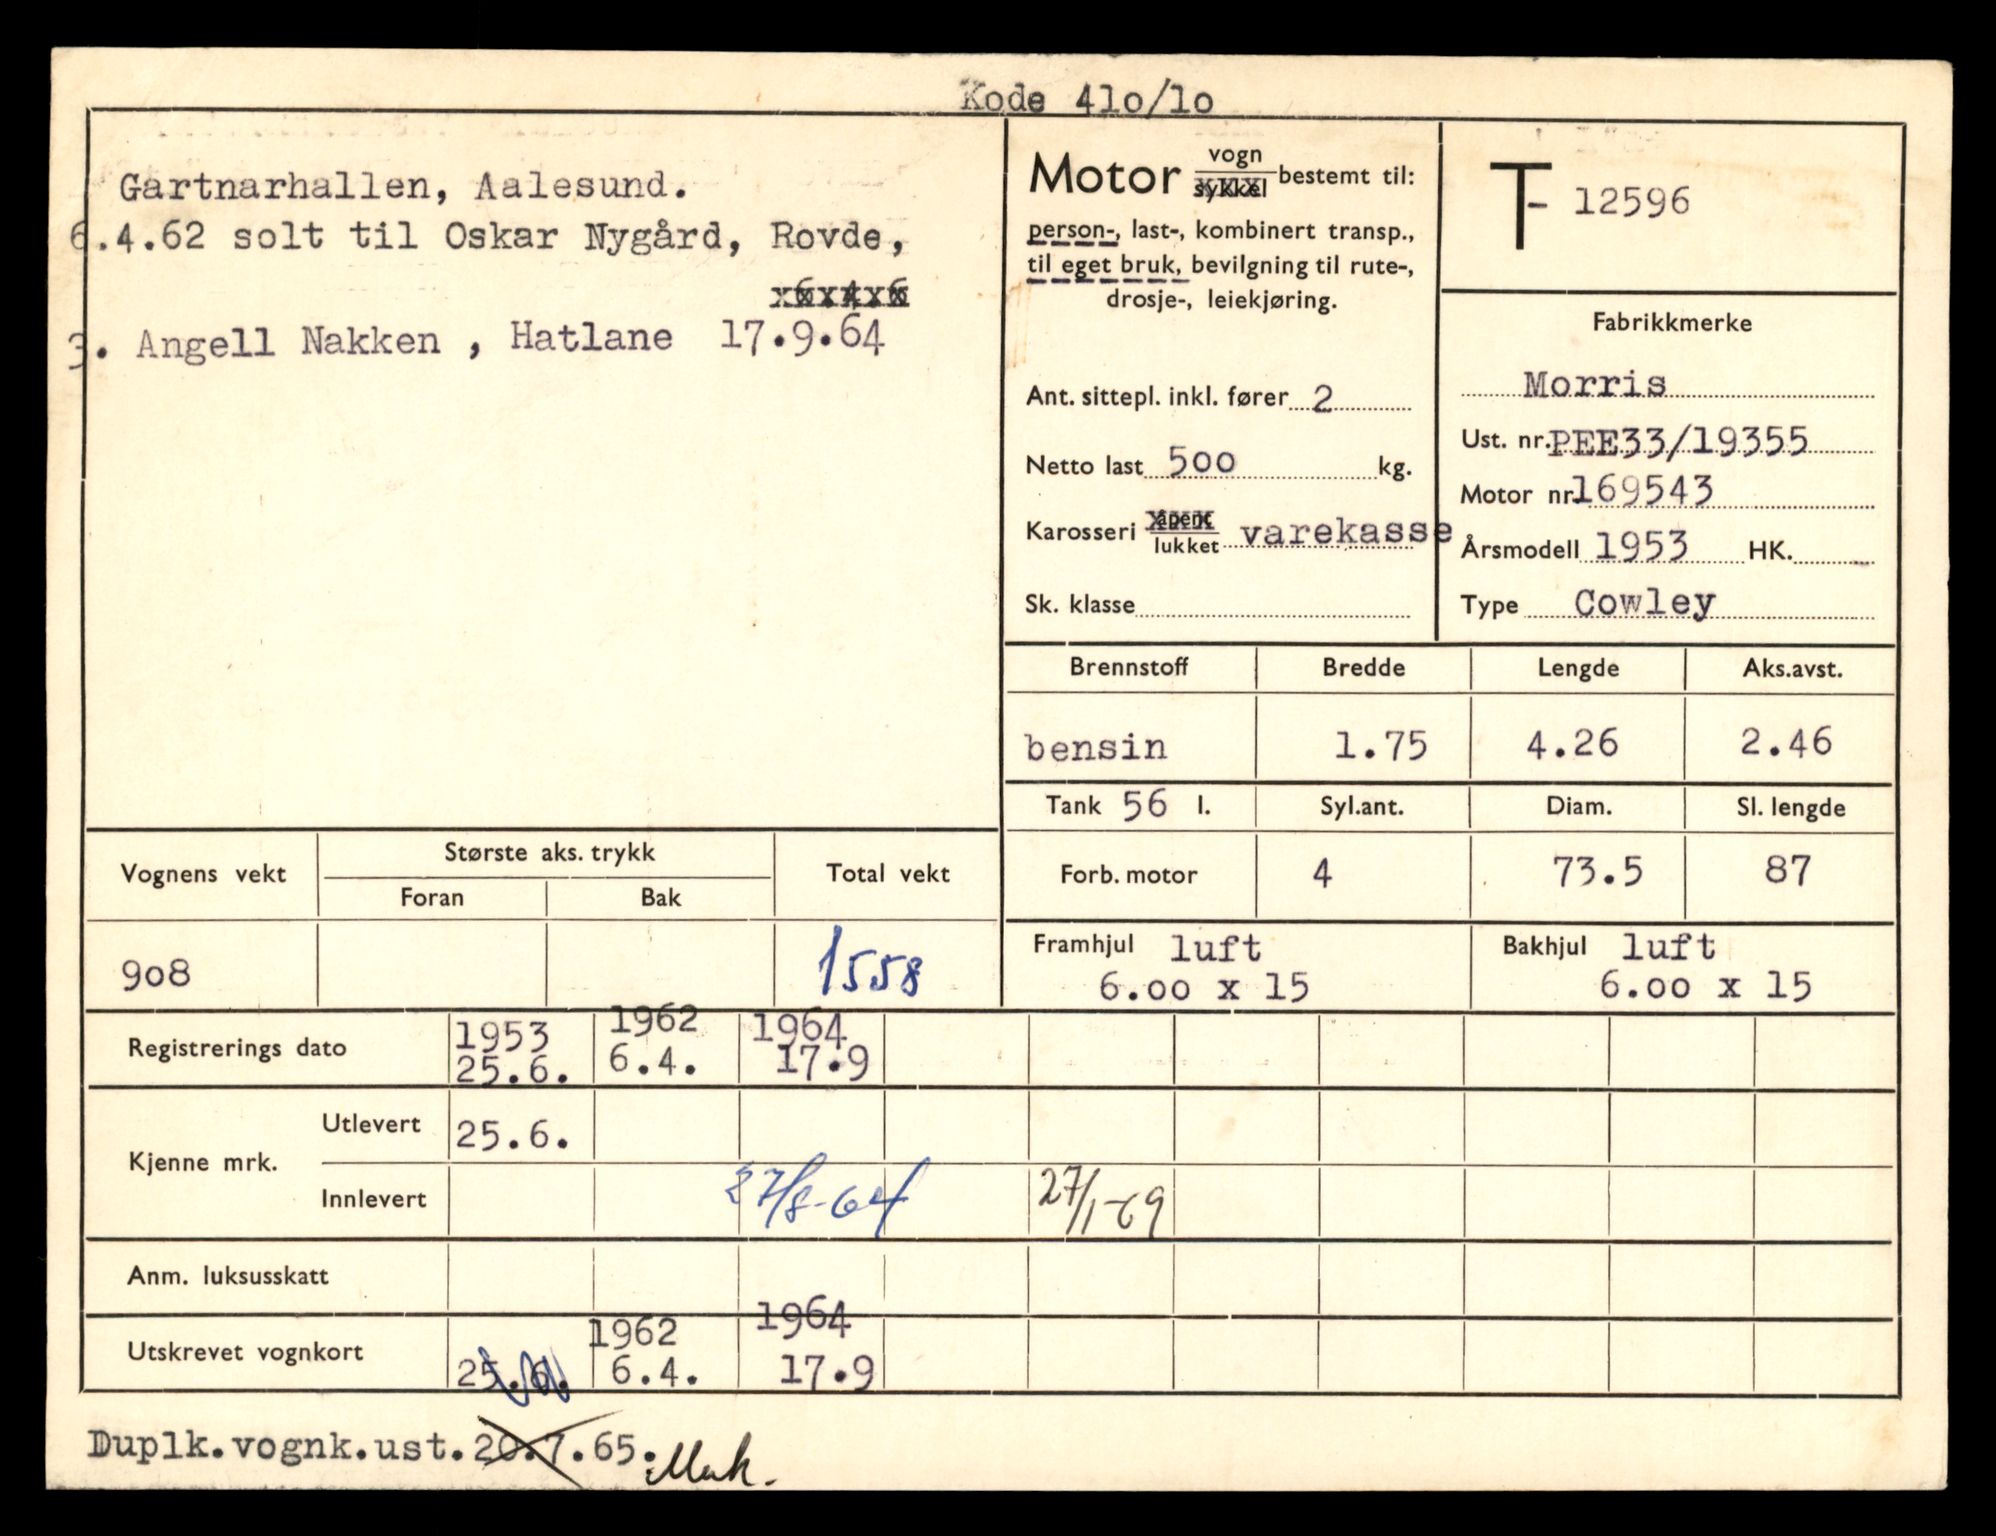 Kode 41o/1o
Gartnarhallen, Aalesund.
6.4.62 solt til Oskar Nygård, Rovde,
3. Angell Nakken , Hatlane 17.9.64
Motor vogn sykkel bestemt til:
person-, last-, kombinert transp.,
til eget bruk, bevilgning til rute-,
drosje-, leiekjøring.
Ant. sittepl. inkl. fører 2
Netto last 500 kg.
Karosseri åpent lukket varekasse
Sk. klasse
T- 12596
Fabrikkmerke
Morris
Ust. nr. PEE33/19355
Motor nr. 169543
Årsmodell 1953 HK.
Type Cowley
Brennstoff Bredde Lengde Aks.avst.
bensin 1.75 4.26 2.46
Tank 56 l. Syl.ant. Diam. Sl. lengde
Forb. motor 4 73.5 87
Framhjul luft Bakhjul luft
6.00 x 15 6.00 x 15
Vognens vekt Største aks. trykk Total vekt
Foran Bak
908 1558
1953 1962 1964
Registrerings dato 25.6. 6.4. 17.9
Kjenne mrk. Utlevert 25.6.
Innlevert 27/8-64 27/1-69
Anm. luksusskatt
1962 1964
Utskrevet vognkort 25.6. 6.4. 17.9
Duplk.vognk.ust.20.7.65.